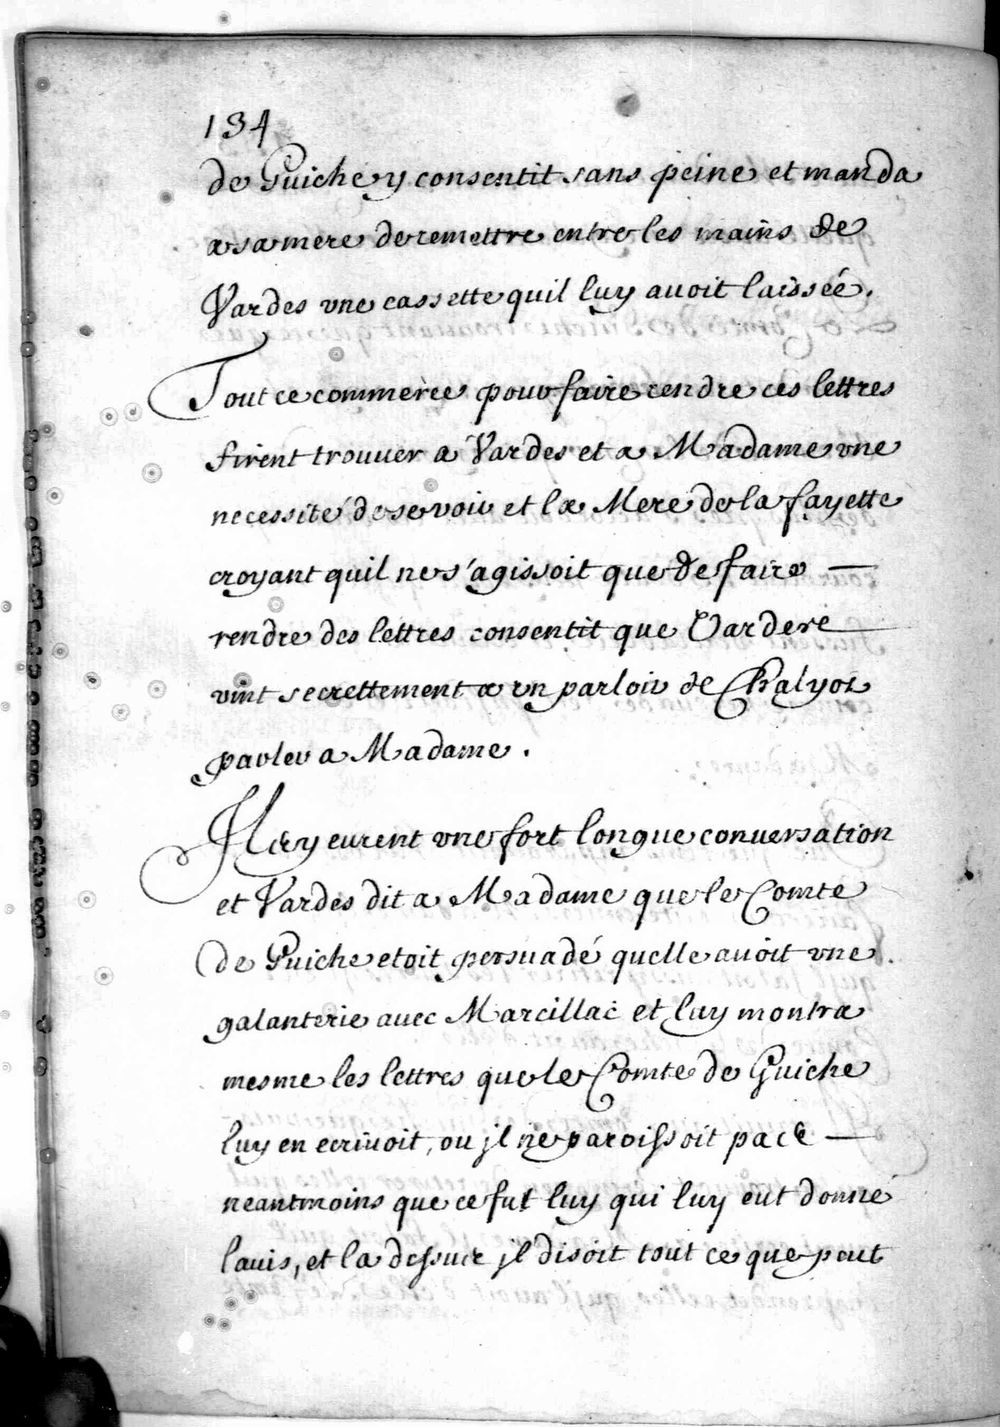 134
de Guiche y consentit sans peine et manda
a sa mere de remettre entre les mains de
Vardes vne cassette quil luy auoit laissée.
Tout ce commerce pour faire rendre ces lettres
firent trouuer a Vardes et a Madame vne
necessité de se voir et la Mere de la fayette
croyant quil ne s'agissoit que de faire —
rendre des lettres consentit que Vardes re
vint secrettement a un parloir de Chalyot
parler a Madame.
Ils y eurent vne fort longue conuersation
et Vardes dit a Madame que le Comte
de Guiche etoit persuadé quelle auoit vne
galanterie auec Marcillac et luy montra
mesme les lettres que le Comte de Guiche
luy en ecriuoit, ou jl ne paroissoit pas —
neantmoins que ce fut luy qui luy eut donné
lauis, et la dessus jl disoit tout ce que peut